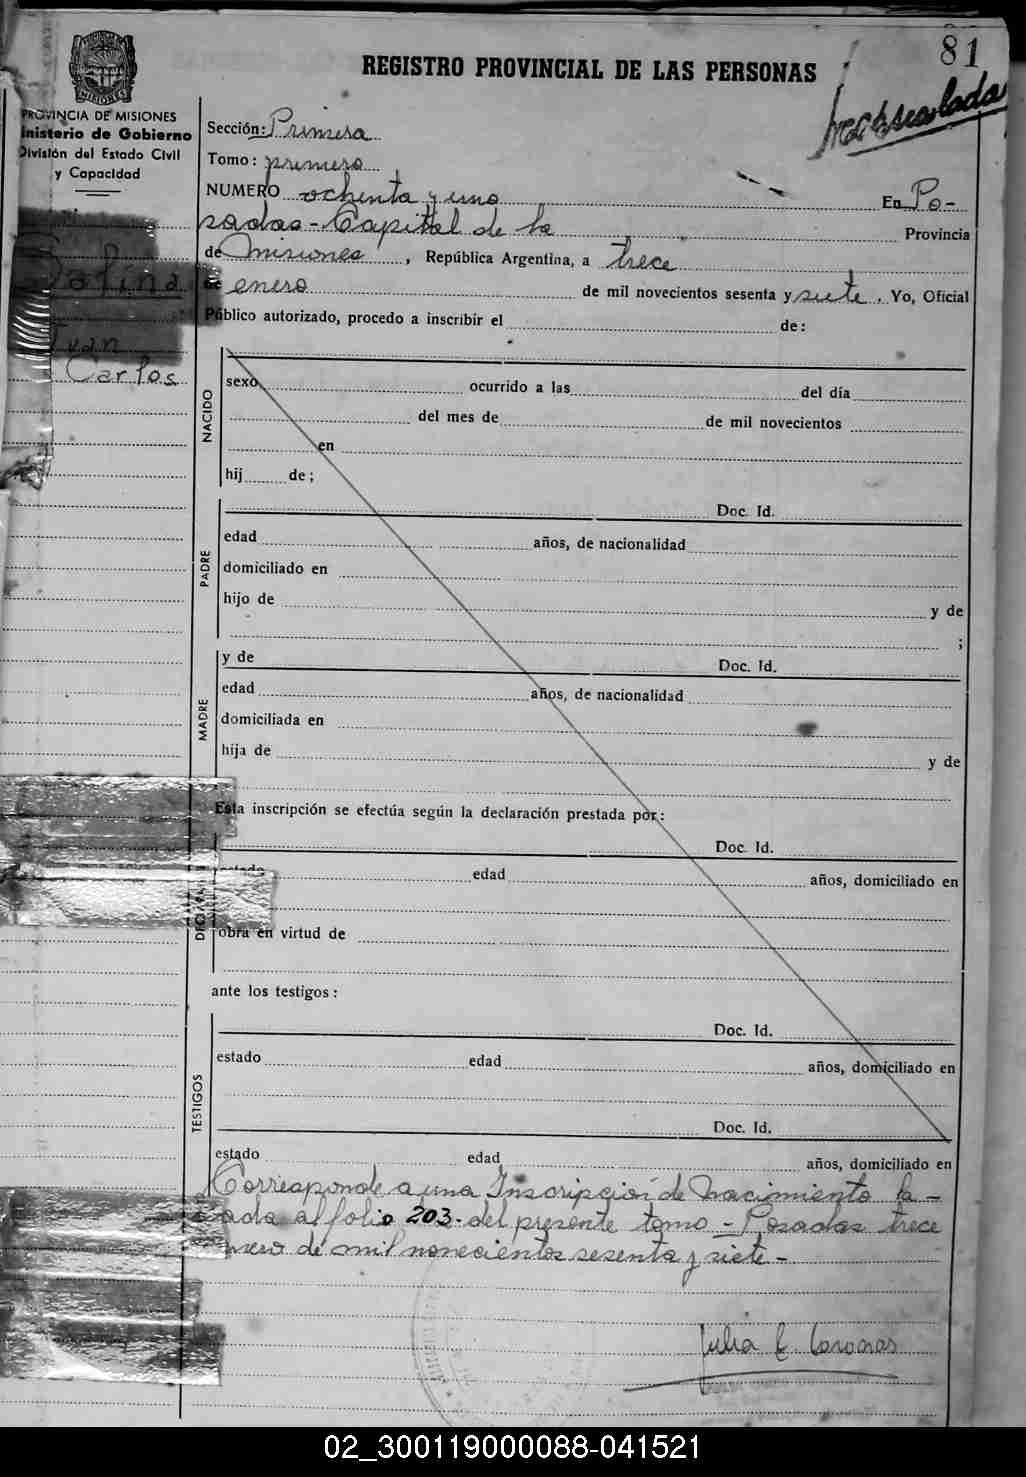 81
REGISTRO PROVINCIAL DE LAS PERSONAS
PROVINCIA DE MISIONES
inisterio de Gobierno
División del Estado Civil
y Capacidad
Sección: Primera
Tomo: primero
NUMERO ochenta y uno En Po-
sadas - Capital de la Provincia
de Misiones, República Argentina, a trece
de enero de mil novecientos sesenta y siete. Yo, Oficial
Público autorizado, procedo a inscribir el de:
Carlos
NACIDO
sexo ocurrido a las del día
del mes de de mil novecientos
en
hij de;
PADRE
Doc. Id.
edad años, de nacionalidad
domiciliado en
hijo de y de
;
MADRE
y de Doc. Id.
edad años, de nacionalidad
domiciliada en
hija de y de
Esta inscripción se efectúa según la declaración prestada por:
Doc. Id.
estado edad años, domiciliado en
obra en virtud de
ante los testigos:
TESTIGOS
Doc. Id.
estado edad años, domiciliado en
Doc. Id.
estado edad años, domiciliado en
Corresponde a una Inscripción de Nacimiento la-
ada al folio 203. del presente tomo - Posadas trece
nero de mil novecientos sesenta y siete -
Julia E.
02_300119000088-041521